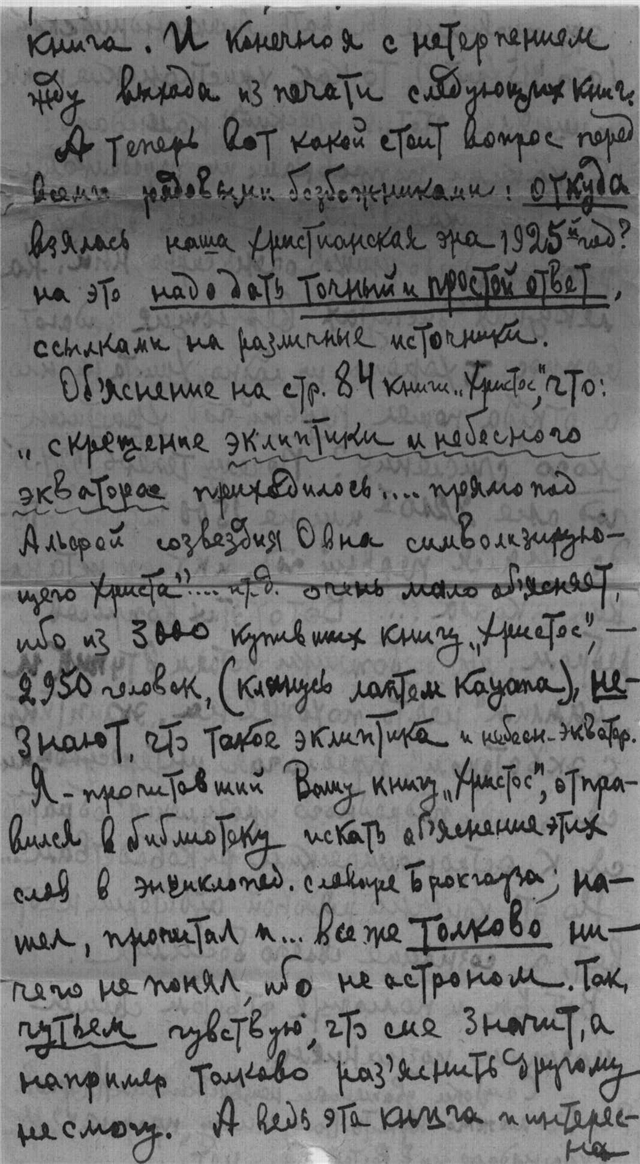 книга. И конечно я с нетерпением
жду выхода из печати следующих книг.
А теперь вот какой стоит вопрос перед
всеми рядовыми безбожниками: откуда
взялась наша христианская эра 1925й год?
на это надо дать точный и простой ответ,
ссылками на различные источники.
Об'яснение на стр. 84 книги „Христос", что:
„скрещение эклиптики и небесного
экватора приходилось.... прямо под
Альфой созвездия Овна символизирую-
щего Христа".... и т.д. очень мало об'ясняет,
ибо из 3000 купивших книгу „Христос", —
2950 человек, (клянусь лаптем Кауапа), не-
знают, что такое эклиптика и небесн. экватор.
Я - прочитавший Вашу книгу „Христос", отпра-
вился в библиотеку искать об'яснение этих
слов в энциклопед. словаре Брокгауза; на-
шел, прочитал и... все же толково ни-
чего не понял, ибо не астроном. Так,
чутьем чувствую, что сие значит, а
например толково раз'яснить другому
не смогу. А ведь эта книга и интерес-
на